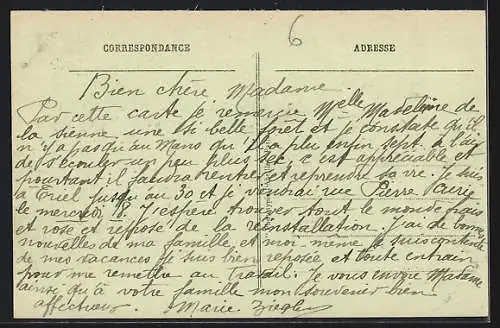 6
CORRESPONDANCE ADRESSE
Bien chère Madame
Par cette carte je remercie Melle Madeleine de
la sienne une si belle forêt et je constate qu'il
n'y a pas qu'au Mans qu'il a plu enfin sept. a l'air
de s'écouler un peu plus sec c'est appréciable et
pourtant il faudra rentrer et reprendre la vie. Je suis
à Triel jusqu'au 30 et je viendrai rue Pierre Curie
le mercredi 8. J'espère trouver tout le monde frais
et rose et reposé de la réinstallation. J'ai de bonnes
nouvelles de ma famille et moi-même je suis contente
de mes vacances je suis bien reposée et toute entrain
pour me remettre au travail. Je vous envoie Madame
ainsi qu'à votre famille mon souvenir bien
affectueux. Marie Ziegler